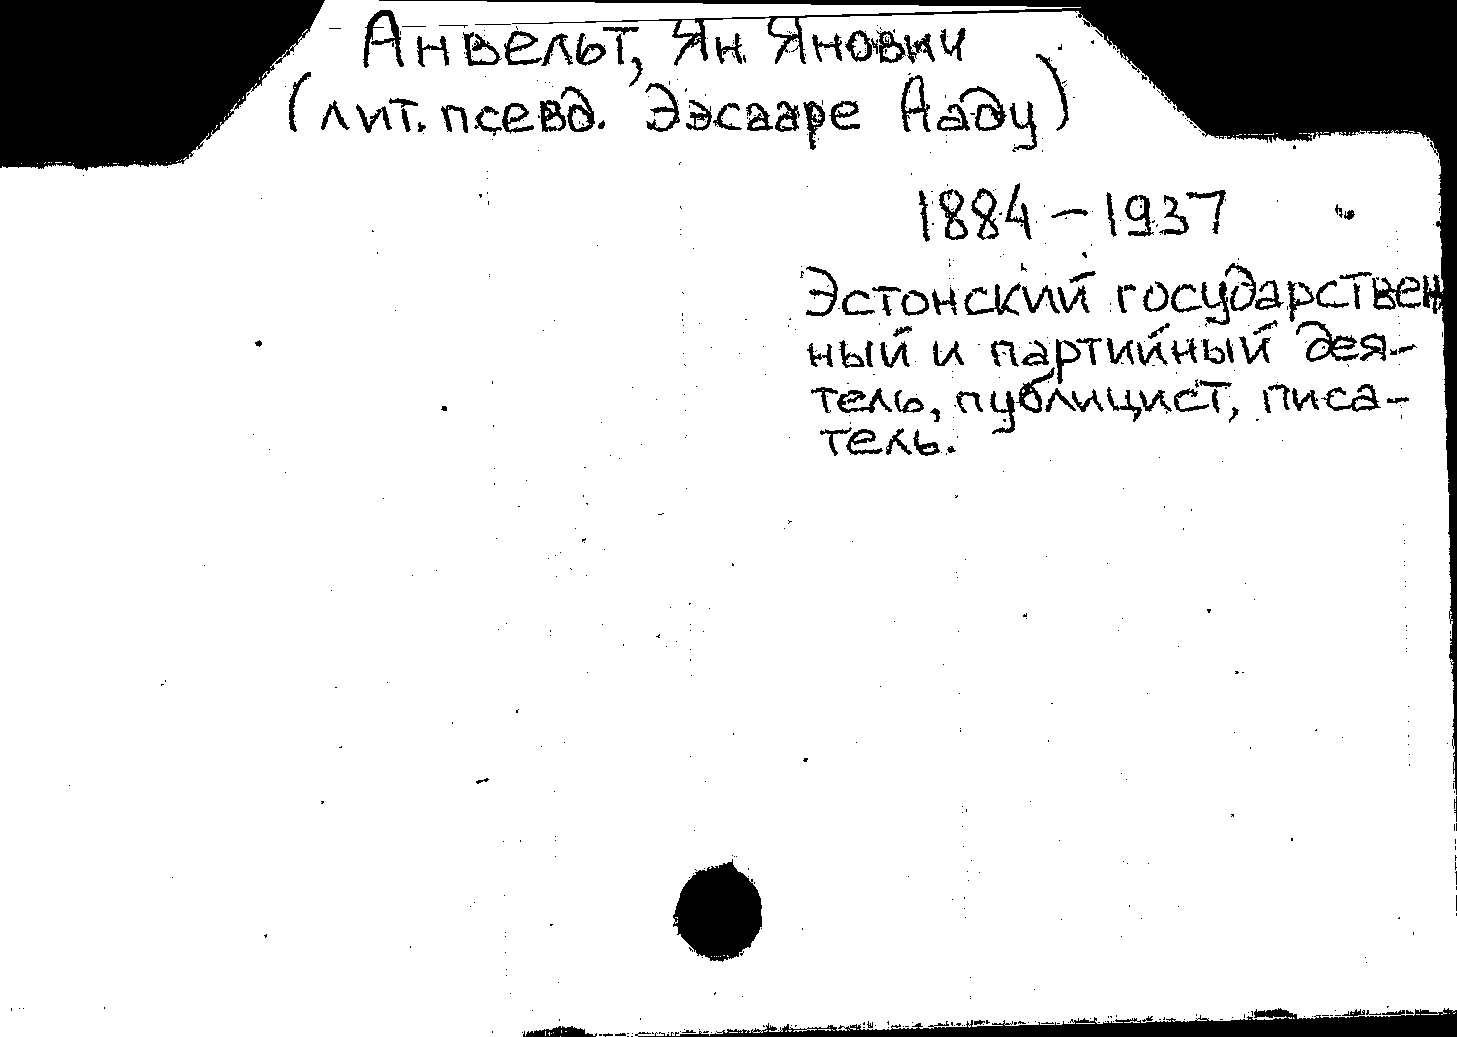 Анвельт, Ян Янович
(лит. псевд. Ээсааре Ааду)
1884 – 1937
Эстонский государствен
ный и партийный дея-
тель, публицист, писа-
тель.